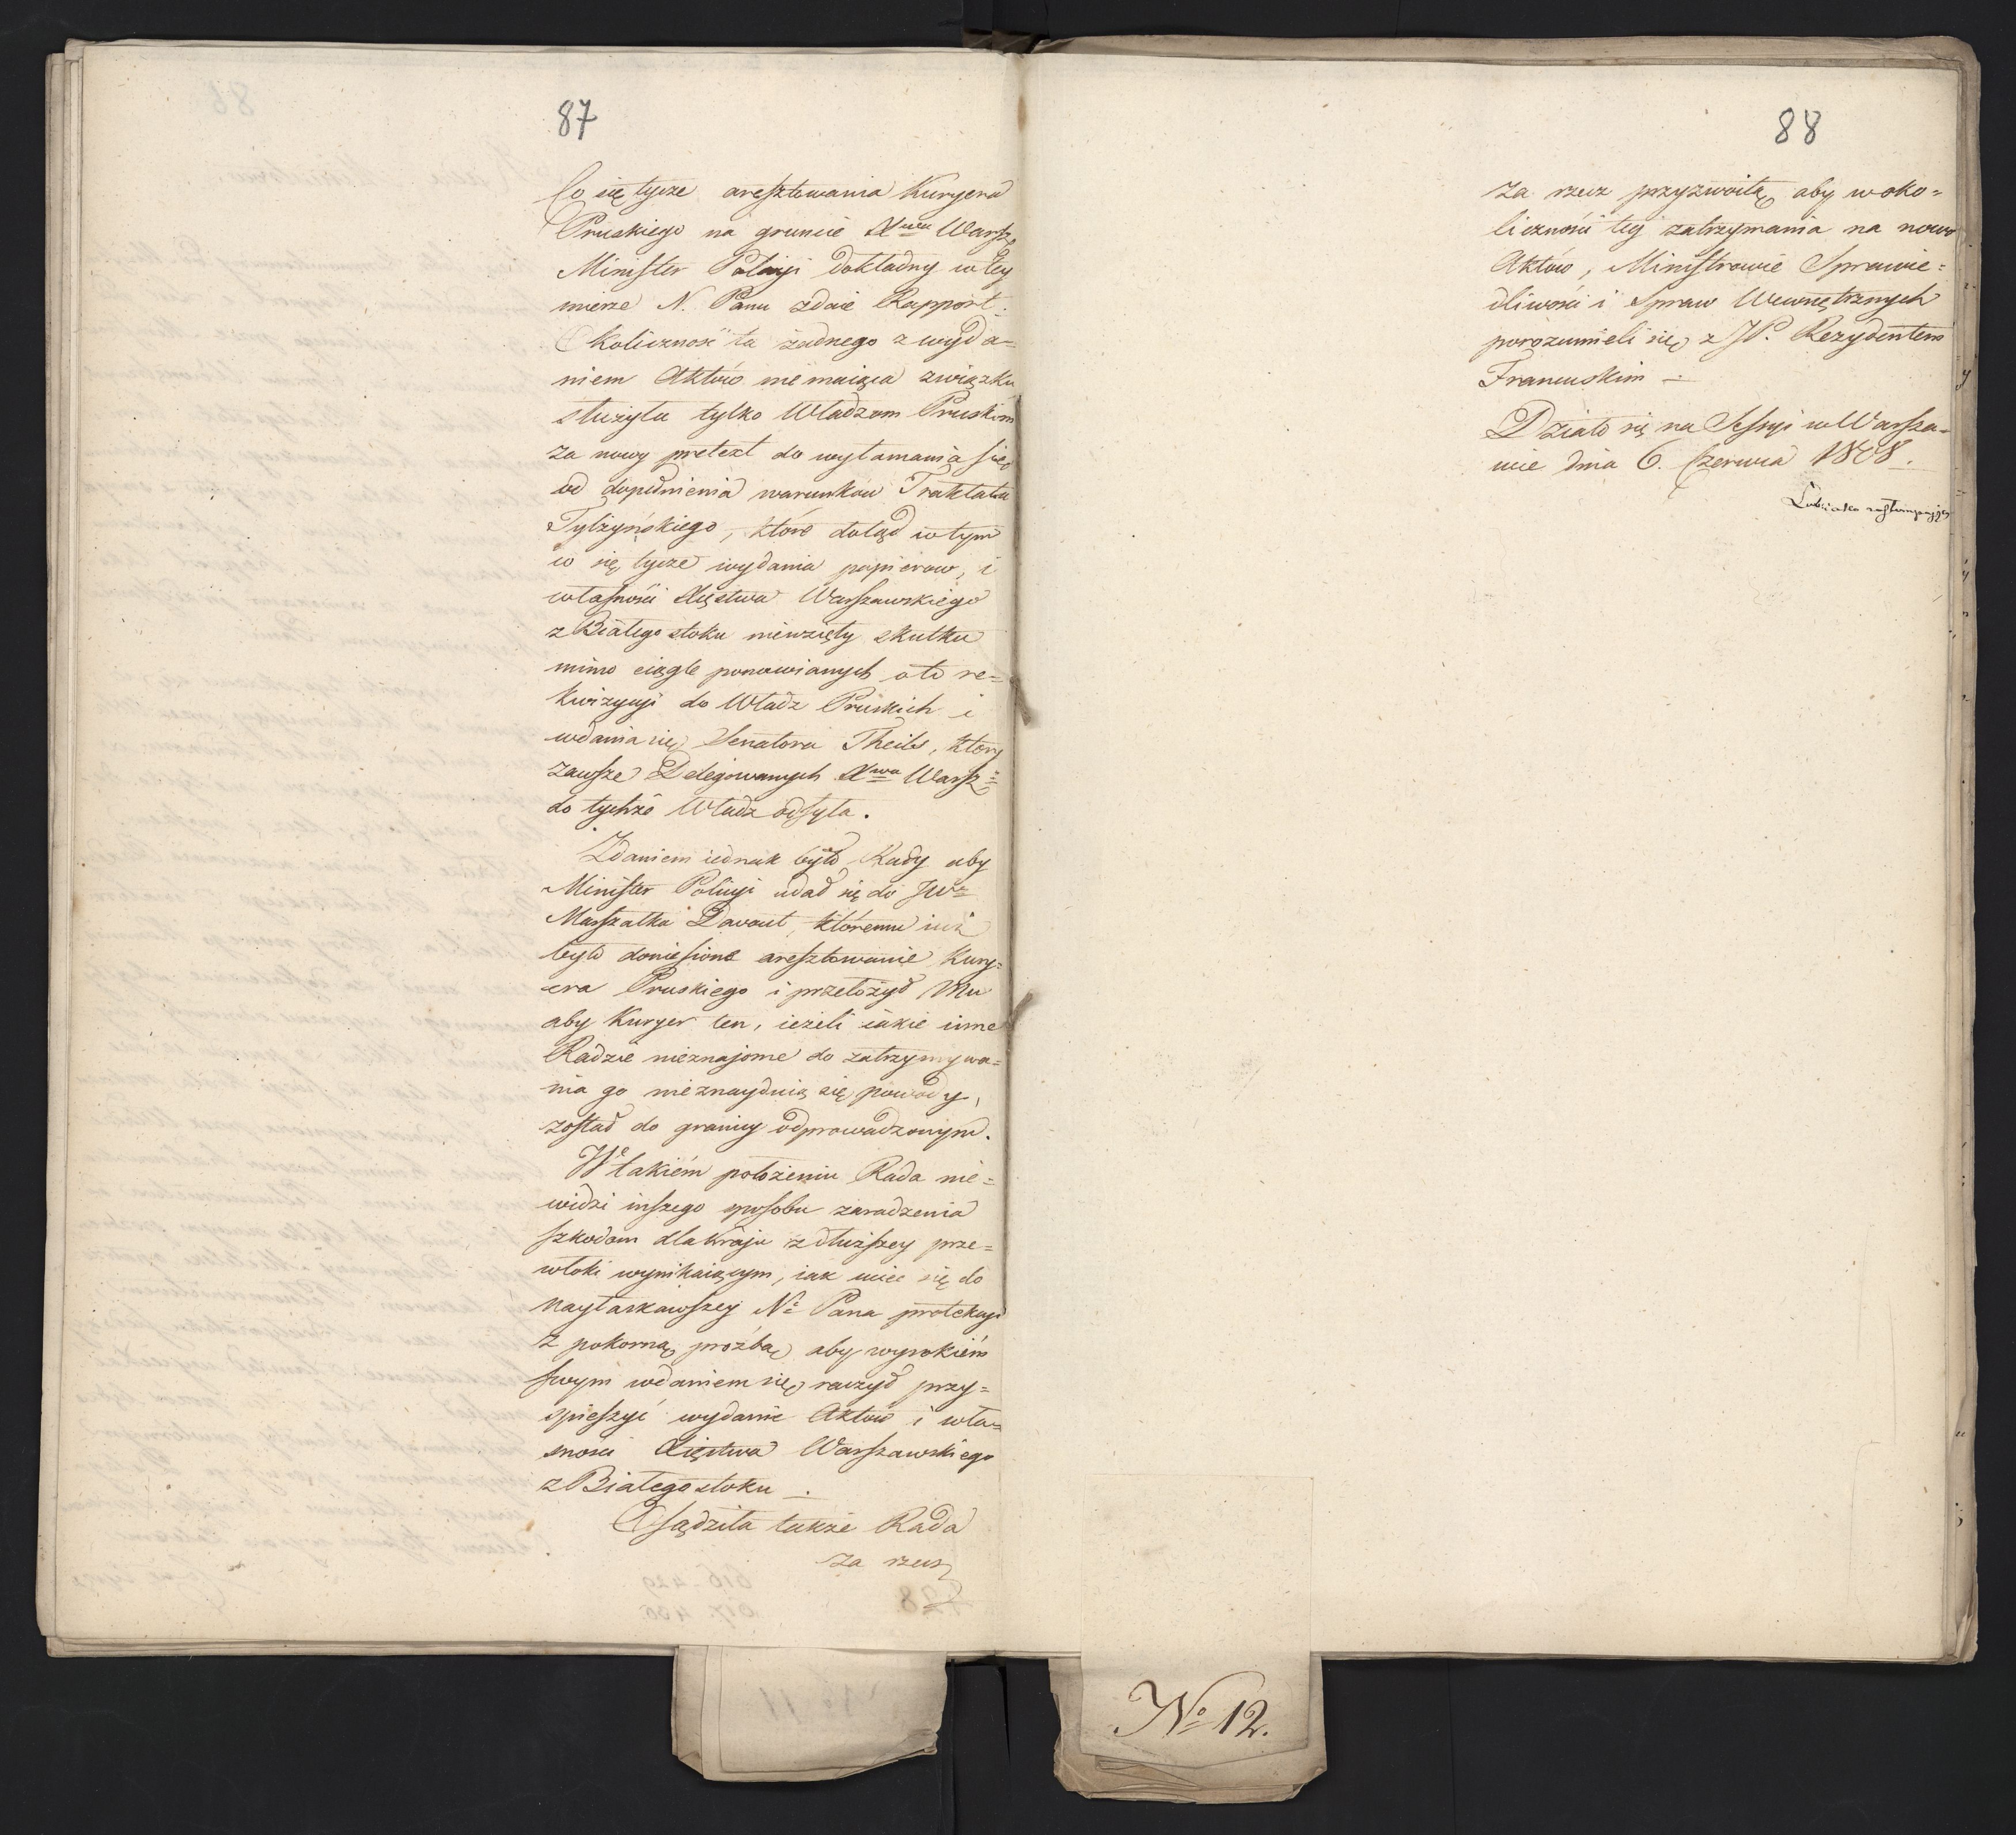 87
Co się tycze aresztowania Kuryera
Pruskiego na gruncie Xwa Warsz.
Minister Policyi dokładny w tey
mierze N. Panu zdaie Rapport.
Okoliczność ta żadnego z wyda=
niem Aktów nie maiąca związku
służyła tylko Władzom Pruskim
za nowy pretext do wyłamania się
od dopełnienia warunków Traktatu
Tylżyńskiego, które dotąd w tym
co się tycze wydania papierow, i
własności Xięstwa Warszawskiego
z Białegostoku niewzięły skutku
mimo ciągle ponawianych o to re=
kwizycyi do Władz Pruskich i
wdania się Senatora Theils, który
zawsze Delegowanych Xwa Warsz:
do tychże Władz odsyła.
Zdaniem iednak było Rady aby
Minister Policyi udał się do JW
Marszałka Davout, któremu iuż
było doniesione aresztowanie Kury=
era Pruskiego i przełożył Mu
aby Kuryer ten, ieżeli iakie inne
Radzie nieznajome do zatrzymywa=
nia go nieznaydują się powody,
został do granicy odprowadzonym.
W takiém położeniu Rada nie=
widzi inszego sposobu zaradzenia
szkodom dla kraju z dłuższey prze=
włoki wynikaiącym, iak uciec się do
nayłaskawszey No Pana protekcyi
z pokorną prozbą aby wysokiém
swym wdaniem się raczył przy=
spieszyć wydanie Aktów i wła=
sności Xięstwa Warszawskiego
z Białegostoku.
Osądziła także Rada
za rzecz
88
za rzecz przyzwoitą aby w oko=
liczności tey zatrzymania na nowo
Aktów, Ministrowie Sprawie=
dliwości i Spraw Wewnętrznych
porozumieli się z JP. Rezydentem
Francuskim.
Działo się na Sessyi w Warsza=
wie dnia 6. Czerwca 1808.
No 12.